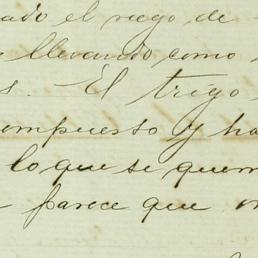 ado el riego de
llevando como
s. El trigo
ompuesto y ha
lo que se quem
parece que